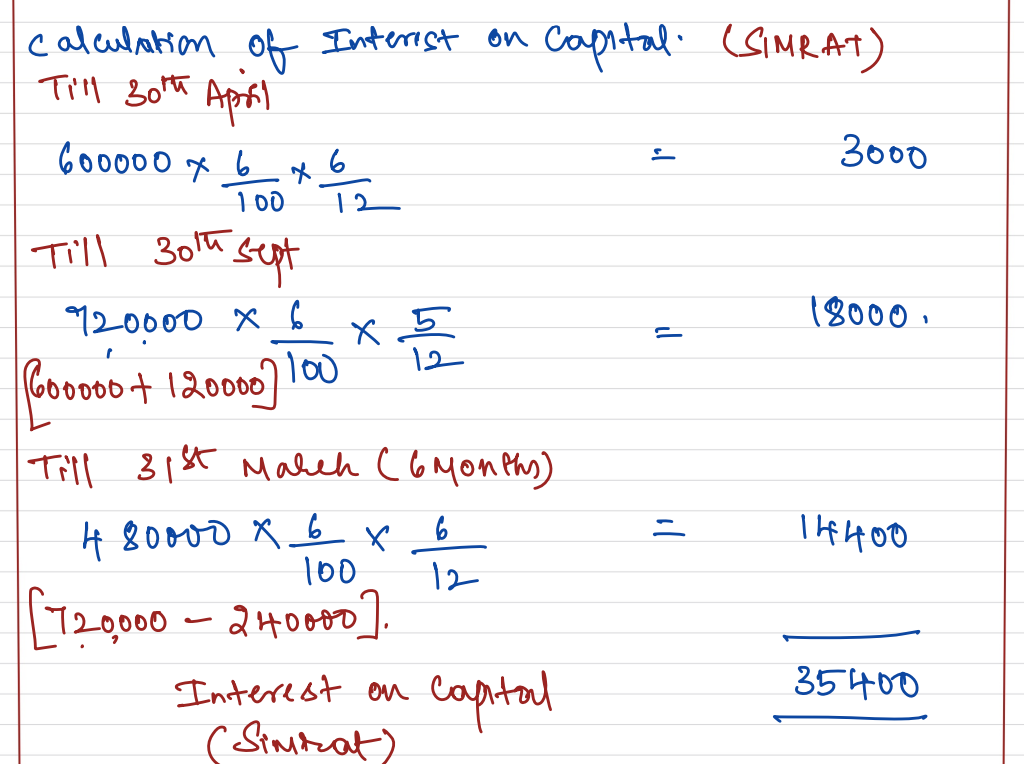 Calculation of Interest on Capital. (SIMRAT)
Till 30th April
600000 × 6/100 × 6/12 = 3000
Till 30th Sept
720000 × 6/100 × 5/12 = 18000.
[600000 + 120000]
Till 31st March (6 Months)
480000 × 6/100 × 6/12 = 14400
[720,000 – 240000].
Interest on Capital 35400
(Simrat)